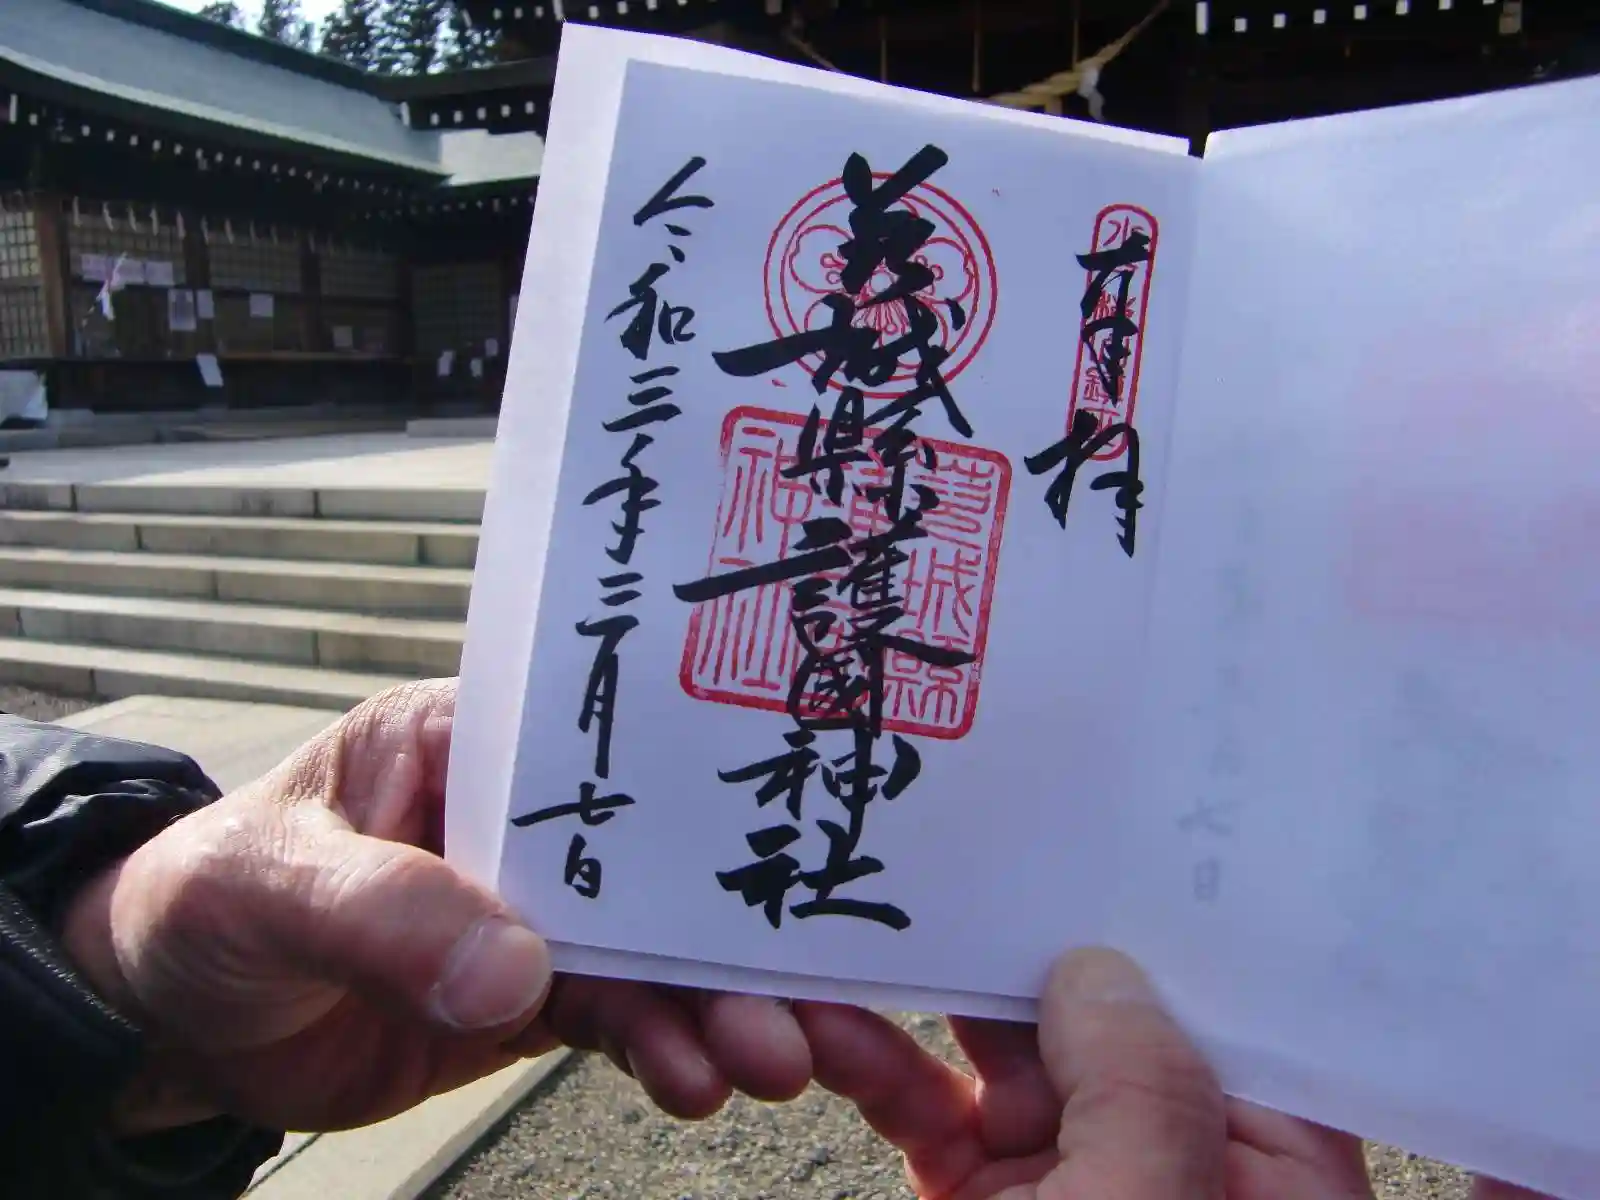 奉拝
水戸桜山鎮座
茨城縣護國神社
茨城縣
護國
神社
令和三年三月七日
七日